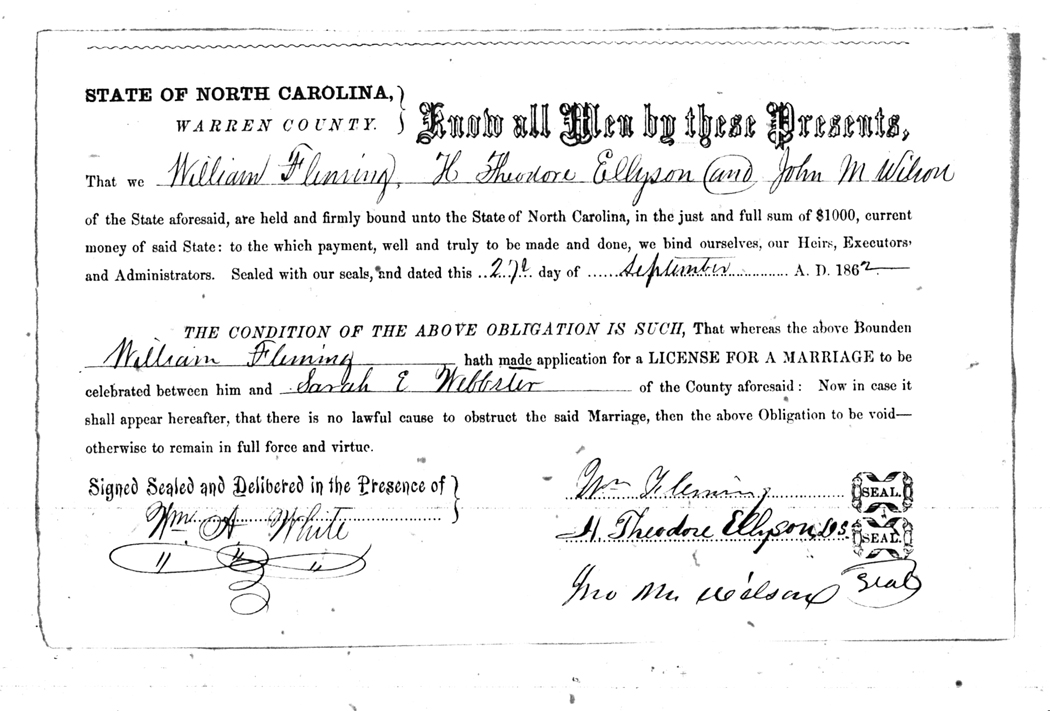 STATE OF NORTH CAROLINA,
WARREN COUNTY.
Know all Men by these Presents,
That we William Fleming, H Theodore Ellyson and John M Wilson
of the State aforesaid, are held and firmly bound unto the State of North Carolina, in the just and full sum of $1000, current
money of said State: to the which payment, well and truly to be made and done, we bind ourselves, our Heirs, Executors,
and Administrators. Sealed with our seals, and dated this 27th day of September A. D. 1862
THE CONDITION OF THE ABOVE OBLIGATION IS SUCH, That whereas the above Bounden
William Fleming hath made application for a LICENSE FOR A MARRIAGE to be
celebrated between him and Sarah E Webbster of the County aforesaid: Now in case it
shall appear hereafter, that there is no lawful cause to obstruct the said Marriage, then the above Obligation to be void—
otherwise to remain in full force and virtue.
Signed Sealed and Delibered in the Presence of
Wm. A White
Wm Fleming SEAL.
H. Theodore Ellyson, SEAL.
Jno M. Wilson Seal